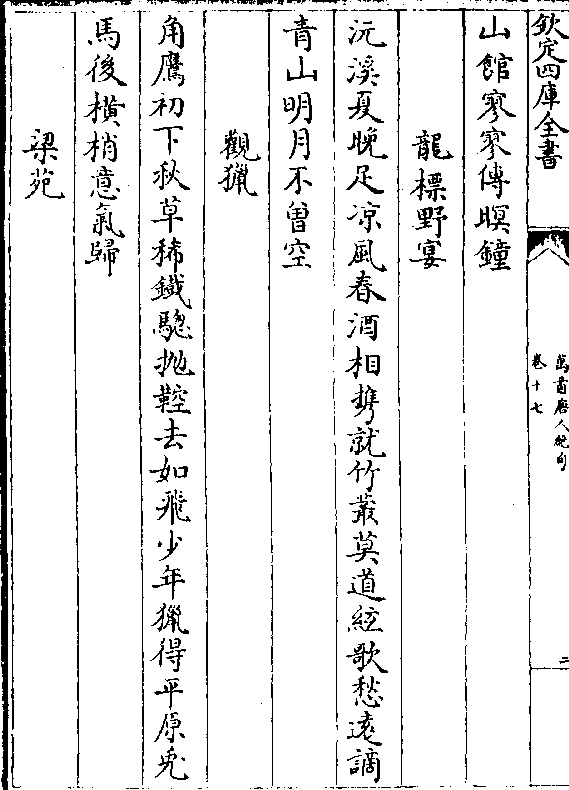 欽定四庫全書
萬首唐人絶句
卷十七
二
山館寥寥傳暝鐘
龍標野宴
沅溪夏晚足凉風春酒相攜就竹叢莫道絃歌愁遠謫
青山明月不曾空
觀獵
角鷹初下秋草稀鐵驄抛鞚去如飛少年獵得平原兎
馬後横梢意氣歸
梁苑